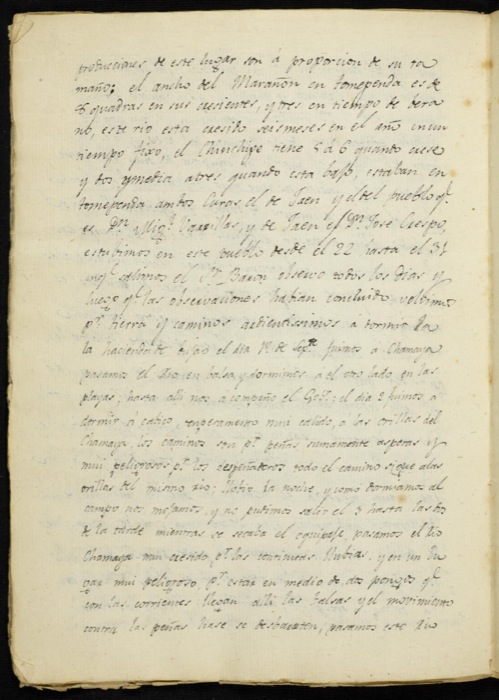 producciones de este lugar son á proporcion de su ta
maño: el ancho del Marañon en tomependa es de
quadras en sus cresientes, y tres en tiempo de vera
no, este rio esta cresido seis meses en el año en un
tiempo fixo, el Chinchipe tiene 5 á 6 quando crese
y dos y media a tres quando esta bajo, estaban en
tomependa ambos Curas el de Jaen y el del pueblo q.e
es D.n Mig.l y de Jaen el D.n José Crespo,
estubimos en este pueblo desde el 22 hasta el 31
q.e salimos el S.r Baron observo todos los dias y
luego q.e las observaciones habian concluido volvimos
p.r tierra y caminos ardientisimos á
la hacienda el dia 1º de Sep.re fuimos á Chamaya
pasamos el Rio en balsa y dormimos á el otro lado en las
playas; hasta alli nos acompaño el Gov.r; el dia 2 fuimos a
dormir á temperamento mui calido, a las orillas del
Chamaya, los caminos son p.r peñas sumamente asperas y
mui peligrosos p.r los despeñaderos todo el camino sigue a las
orillas del mismo rio; llobio la noche, y como dormiamos al
campo nos mojamos, y no pudimos salir el 3 hasta las dos
de la tarde mientras se secaba el equipaje, pasamos el Rio
Chamaya mui cresido p.r las continuas llubias, y en un lu
gar mui peligroso p.r estar en medio de dos q.e
con las corrientes llegan alli las balsas y el movimiento
contra las peñas hase se desbaraten, pasamos este Rio